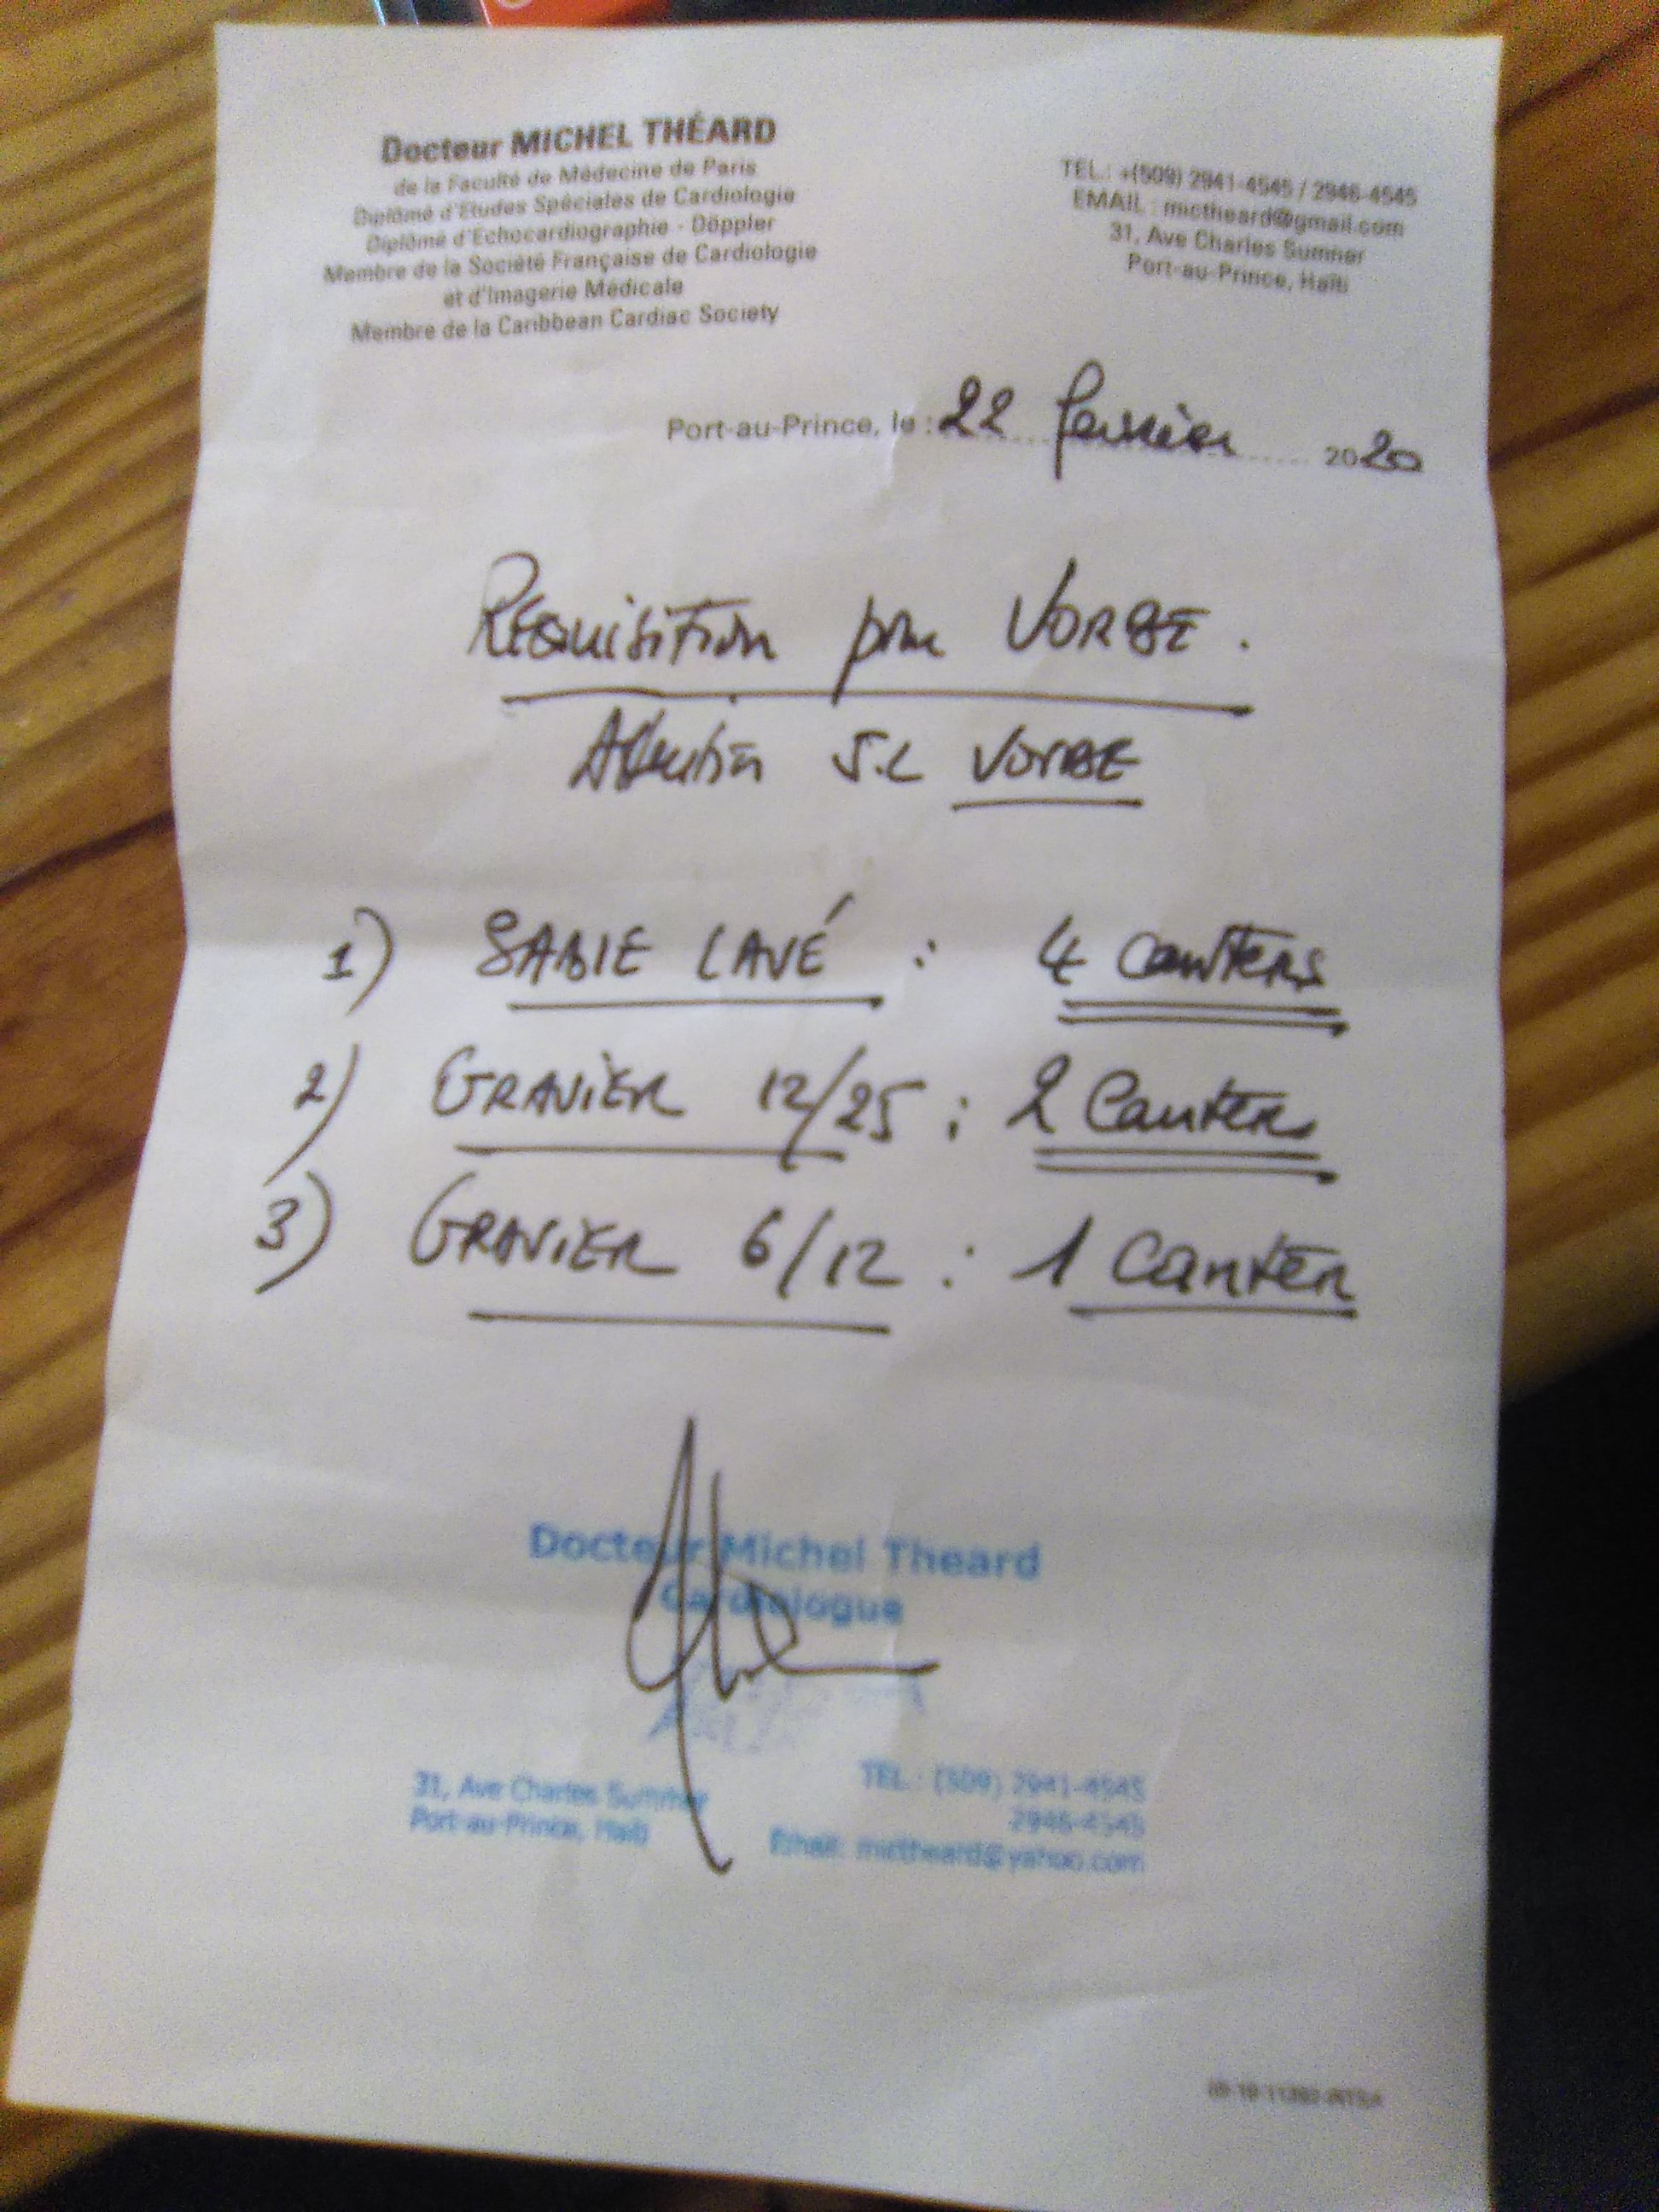 Docteur MICHEL THÉARD
de la Faculté de Médecine de Paris
Diplômé d'Etudes Spéciales de Cardiologie
Diplômé d'Echocardiographie - Döppler
Membre de la Société Française de Cardiologie
et d'Imagerie Médicale
Membre de la Caribbean Cardiac Society
TEL.: +(509) 2941-4545 / 2946-4545
EMAIL : mictheard@gmail.com
31, Ave Charles Sumner
Port-au-Prince, Haïti
Port-au-Prince, le : 22 février 2020
Requisition pour VORBE.
Attention VORBE
1) SABLE LAVÉ : 4 CANTERS
2) GRAVIER 12/25 : 2 Canters
3) GRAVIER 6/12 : 1 Canter
Docteur Michel Theard
Cardiologue
31, Ave Charles Sumner
Port-au-Prince, Haiti
TEL : (509) 2941-4545
2946-4545
Email: mictheard@yahoo.com